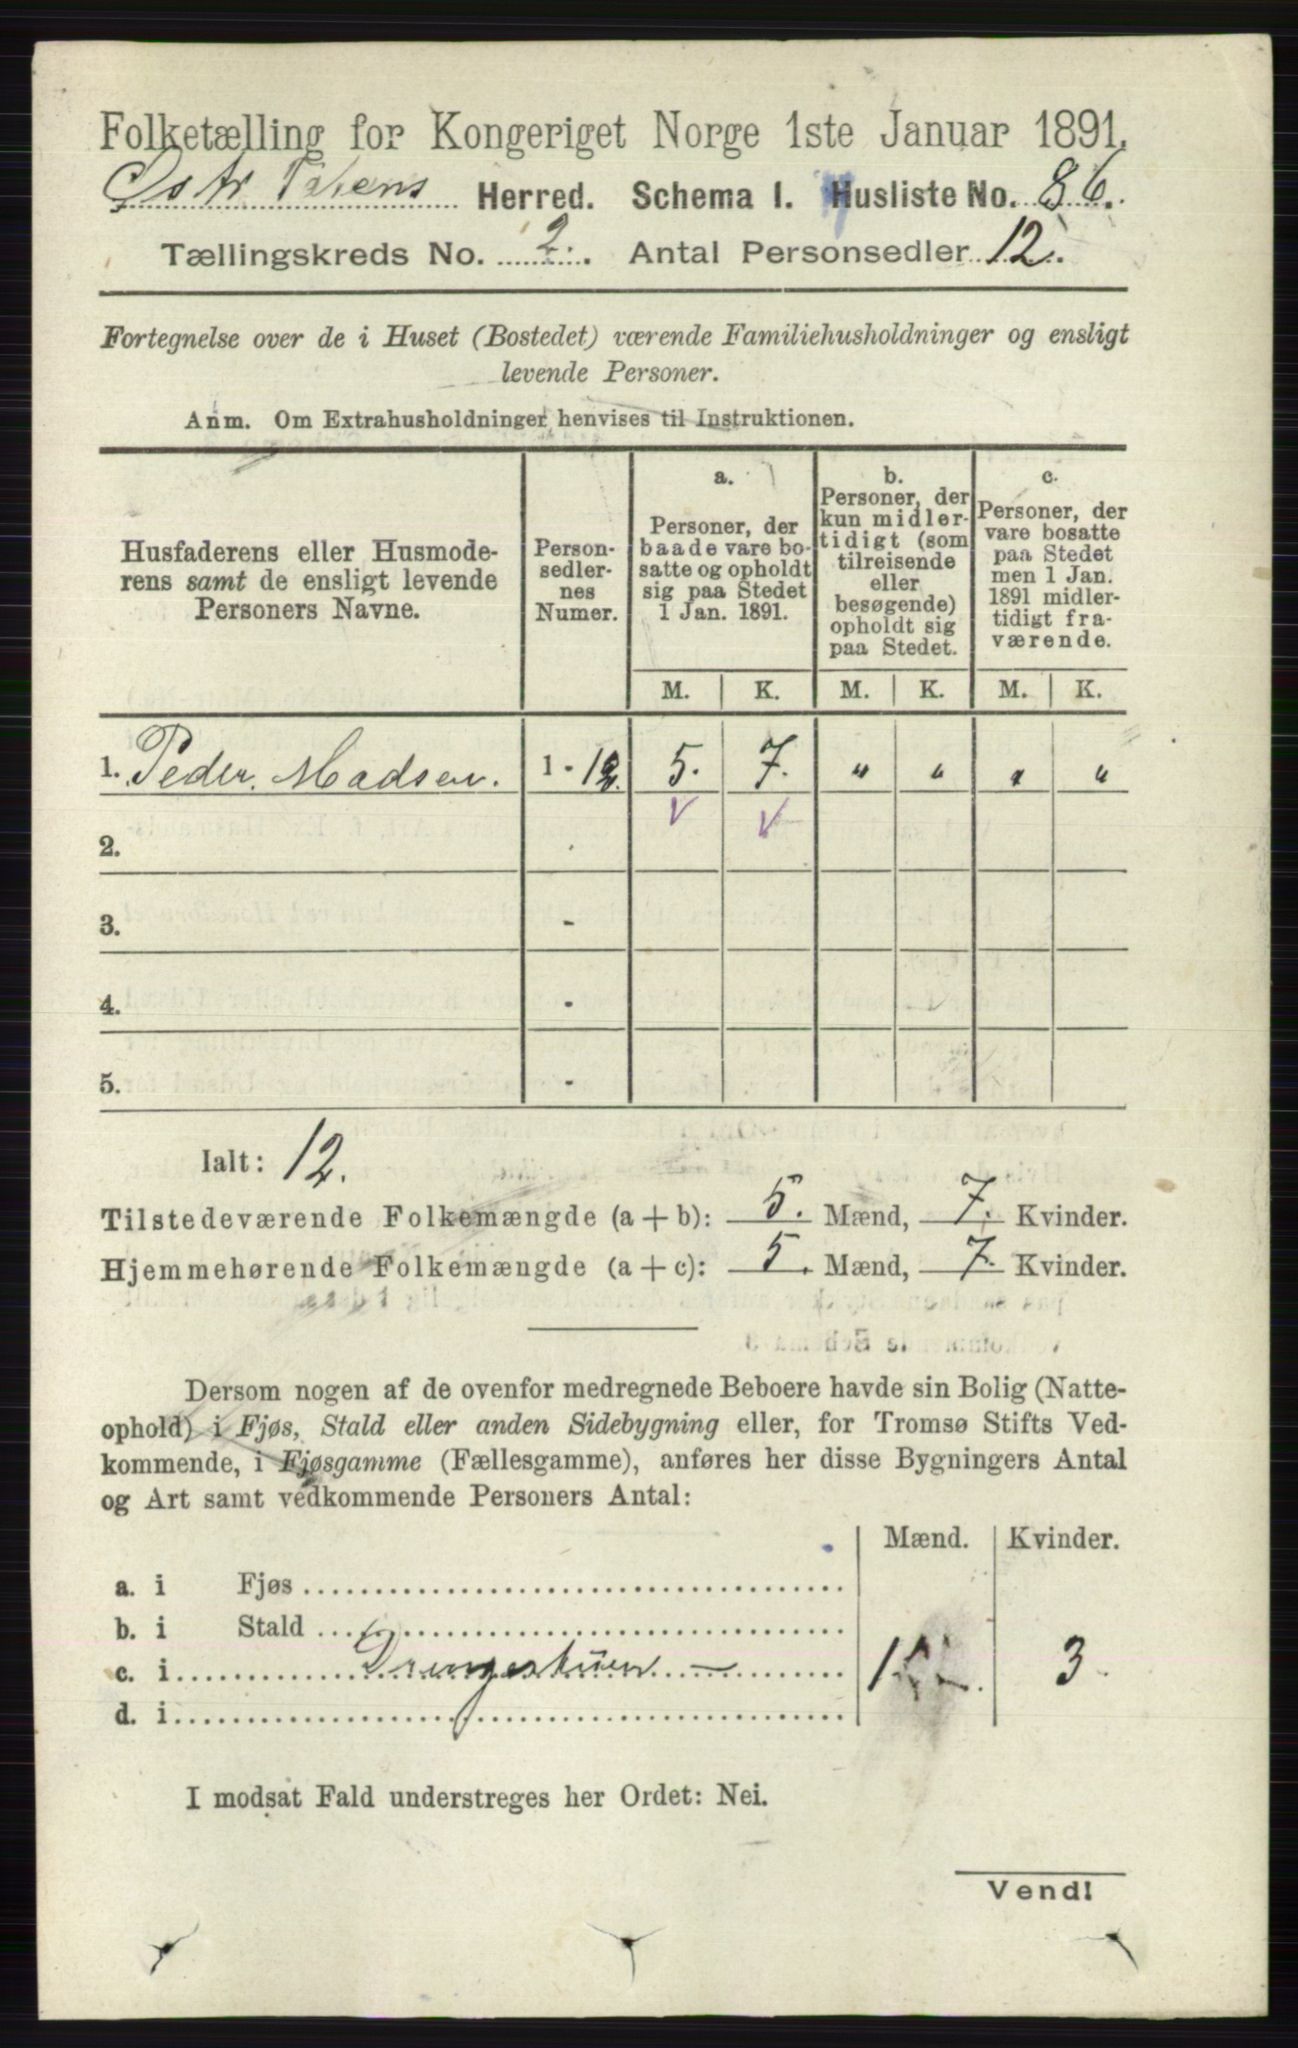 Folketælling for Kongeriget Norge 1ste Januar 1891.
Østr Totens Herred. Schema I. Husliste No. 86.
Tællingskreds No. 2. Antal Personsedler 12.
Fortegnelse over de i Huset (Bostedet) værende Familiehusholdninger og ensligt
levende Personer.
Anm. Om Extrahusholdninger henvises til Instruktionen.
Husfaderens eller Husmode-
rens samt de ensligt levende
Personers Navne.
Person-
sedler-
nes
Numer.
a.
Personer, der
baade vare bo-
satte og opholdt
sig paa Stedet
1 Jan. 1891.
b.
Personer, der
kun midler-
tidigt (som
tilreisende
eller
besøgende)
opholdt sig
paa Stedet.
c.
Personer, der
vare bosatte
paa Stedet
men 1 Jan.
1891 midler-
tidigt fra-
værende.
M. K. M. K. M. K.
1. Peder Madsen. 1 - 12. 5. 7. " " " "
2.
3. -
4. -
5. -
Ialt: 12.
Tilstedeværende Folkemængde (a + b): 5. Mænd, 7. Kvinder.
Hjemmehørende Folkemængde (a + c): 5. Mænd, 7. Kvinder.
Dersom nogen af de ovenfor medregnede Beboere havde sin Bolig (Natte-
ophold) i Fjøs, Stald eller anden Sidebygning eller, for Tromsø Stifts Ved-
kommende, i Fjøsgamme (Fællesgamme), anføres her disse Bygningers Antal
og Art samt vedkommende Personers Antal:
Mænd. Kvinder.
a. i Fjøs
b. i Stald
c. i 3
d. i
I modsat Fald understreges her Ordet: Nei.
Vend!